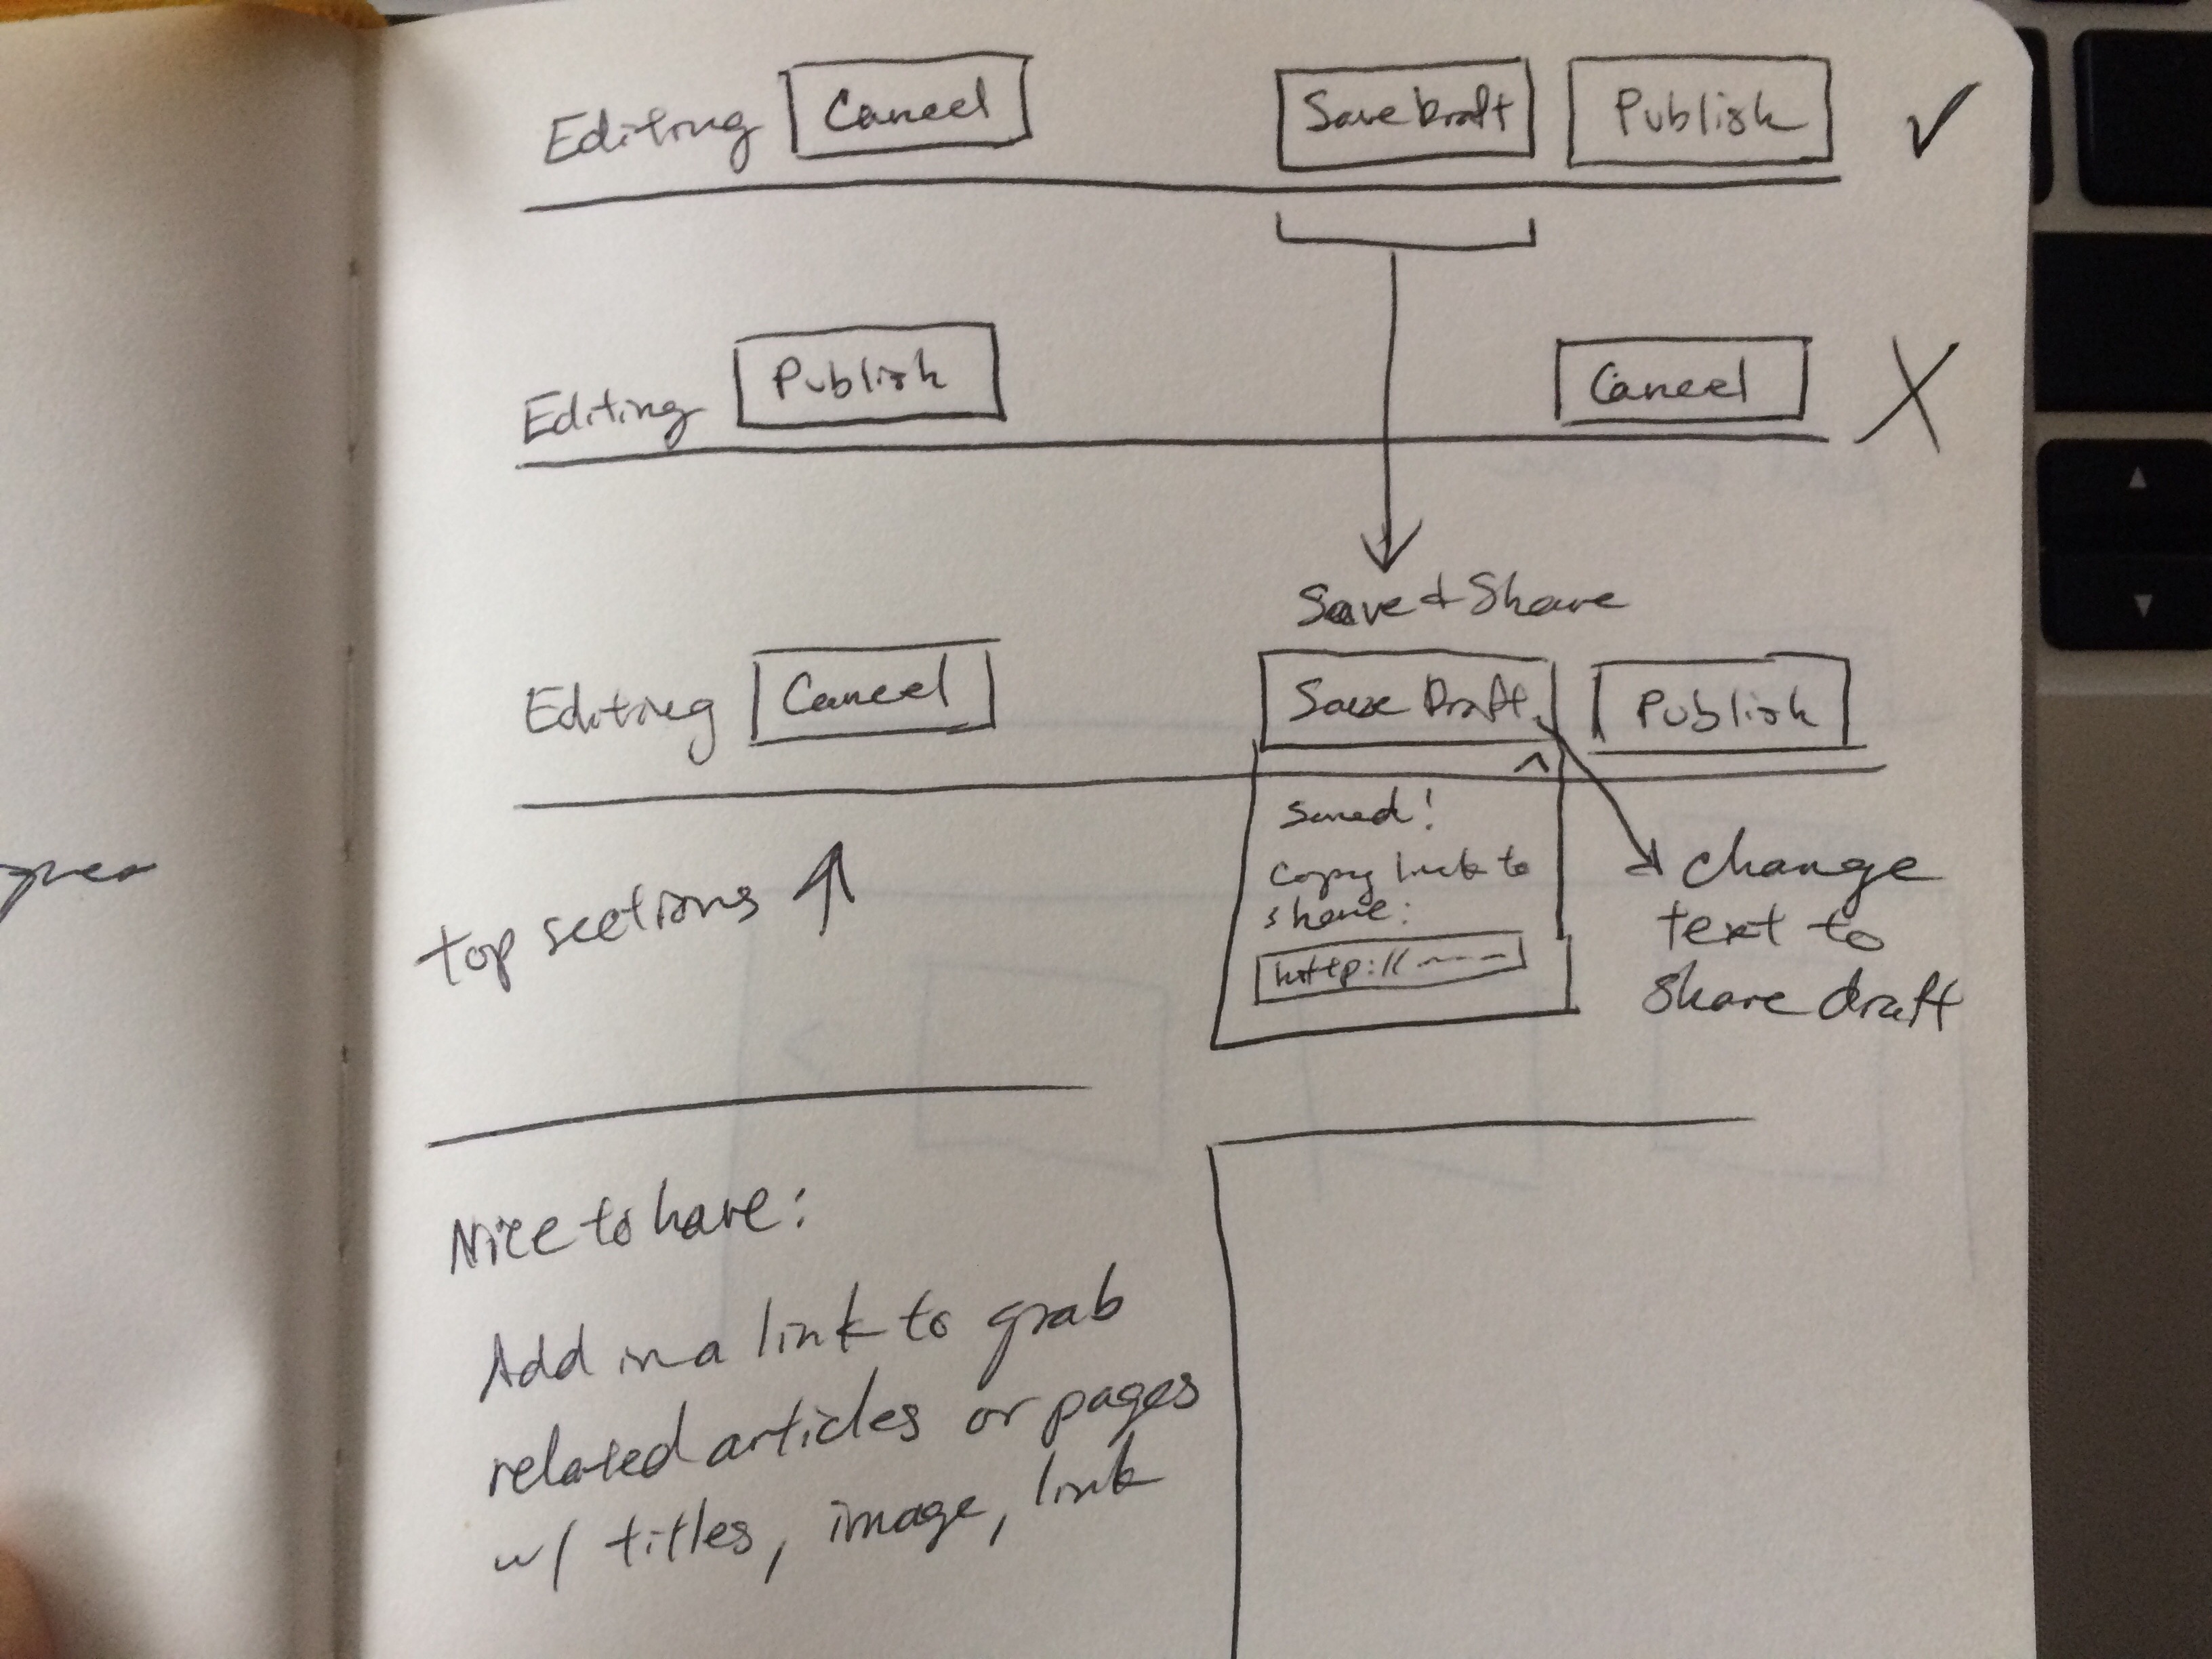 Editing Cancel Save Draft Publish ✓
Editing Publish Cancel X
Save + Share
Editing Cancel Save Draft Publish
Saved!
Copy link to
share:
http://----
change
text to
Share draft
top sections ↑
Nice to have:
Add in a link to grab
related articles or pages
w/ titles, image, link